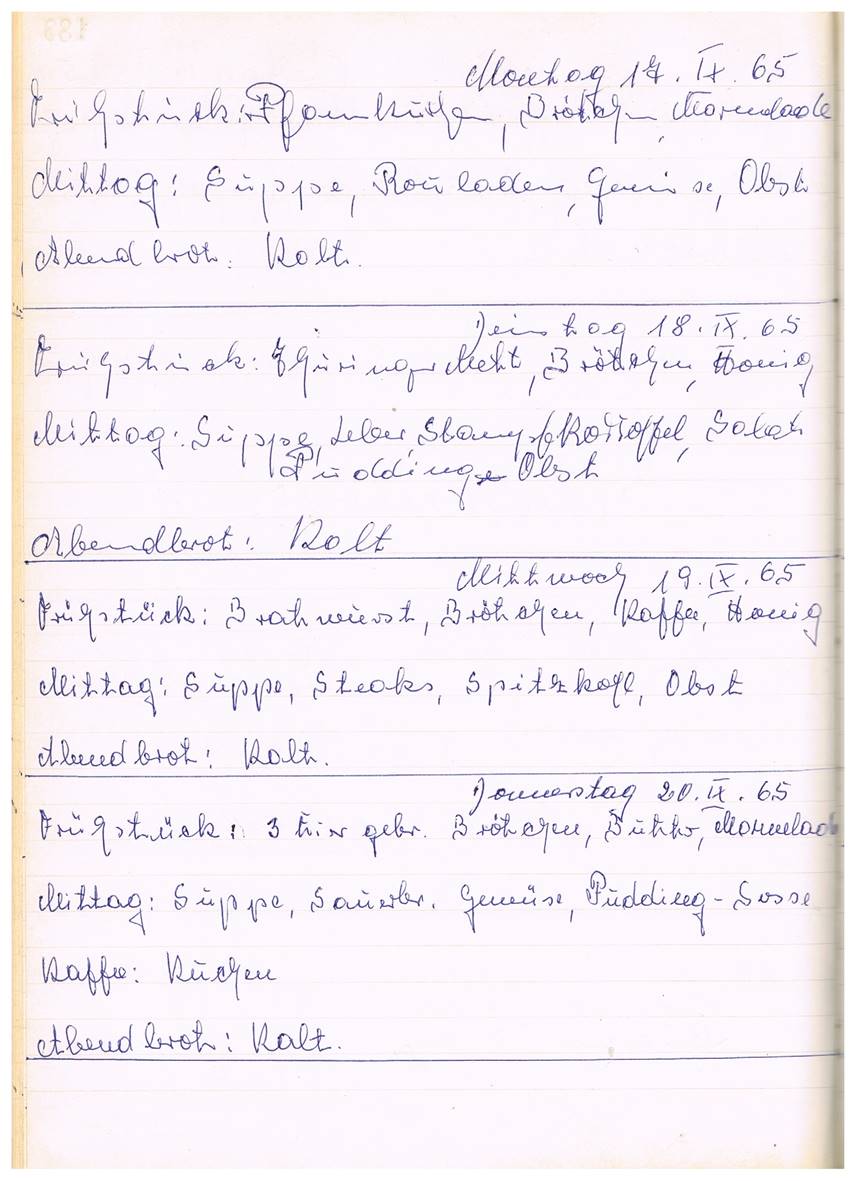 Montag 17. IX. 65
Frühstück: Pfannkuchen, Brötchen, Marmelade
Mittag: Suppe, Rouladen, Gemüse, Obst
Abendbrot: Kalt.
Dienstag 18. IX. 65
Frühstück: Brötchen, Honig
Mittag: Suppe, Leber Stampfkartoffel, Salat
Pudding Obst
Abendbrot: Kalt
Mittwoch 19. IX. 65
Frühstück: Bratwurst, Brötchen, Kaffee, Honig
Mittag: Suppe, Steaks, Spitzkohl, Obst
Abendbrot: Kalt.
Donnerstag 20. IX. 65
Frühstück: 3 Eier gebr. Brötchen, Butter, Marmelade
Mittag: Suppe, Sauerbr. Gemüse, Pudding-Sosse
Kaffee: Kuchen
Abendbrot: Kalt.